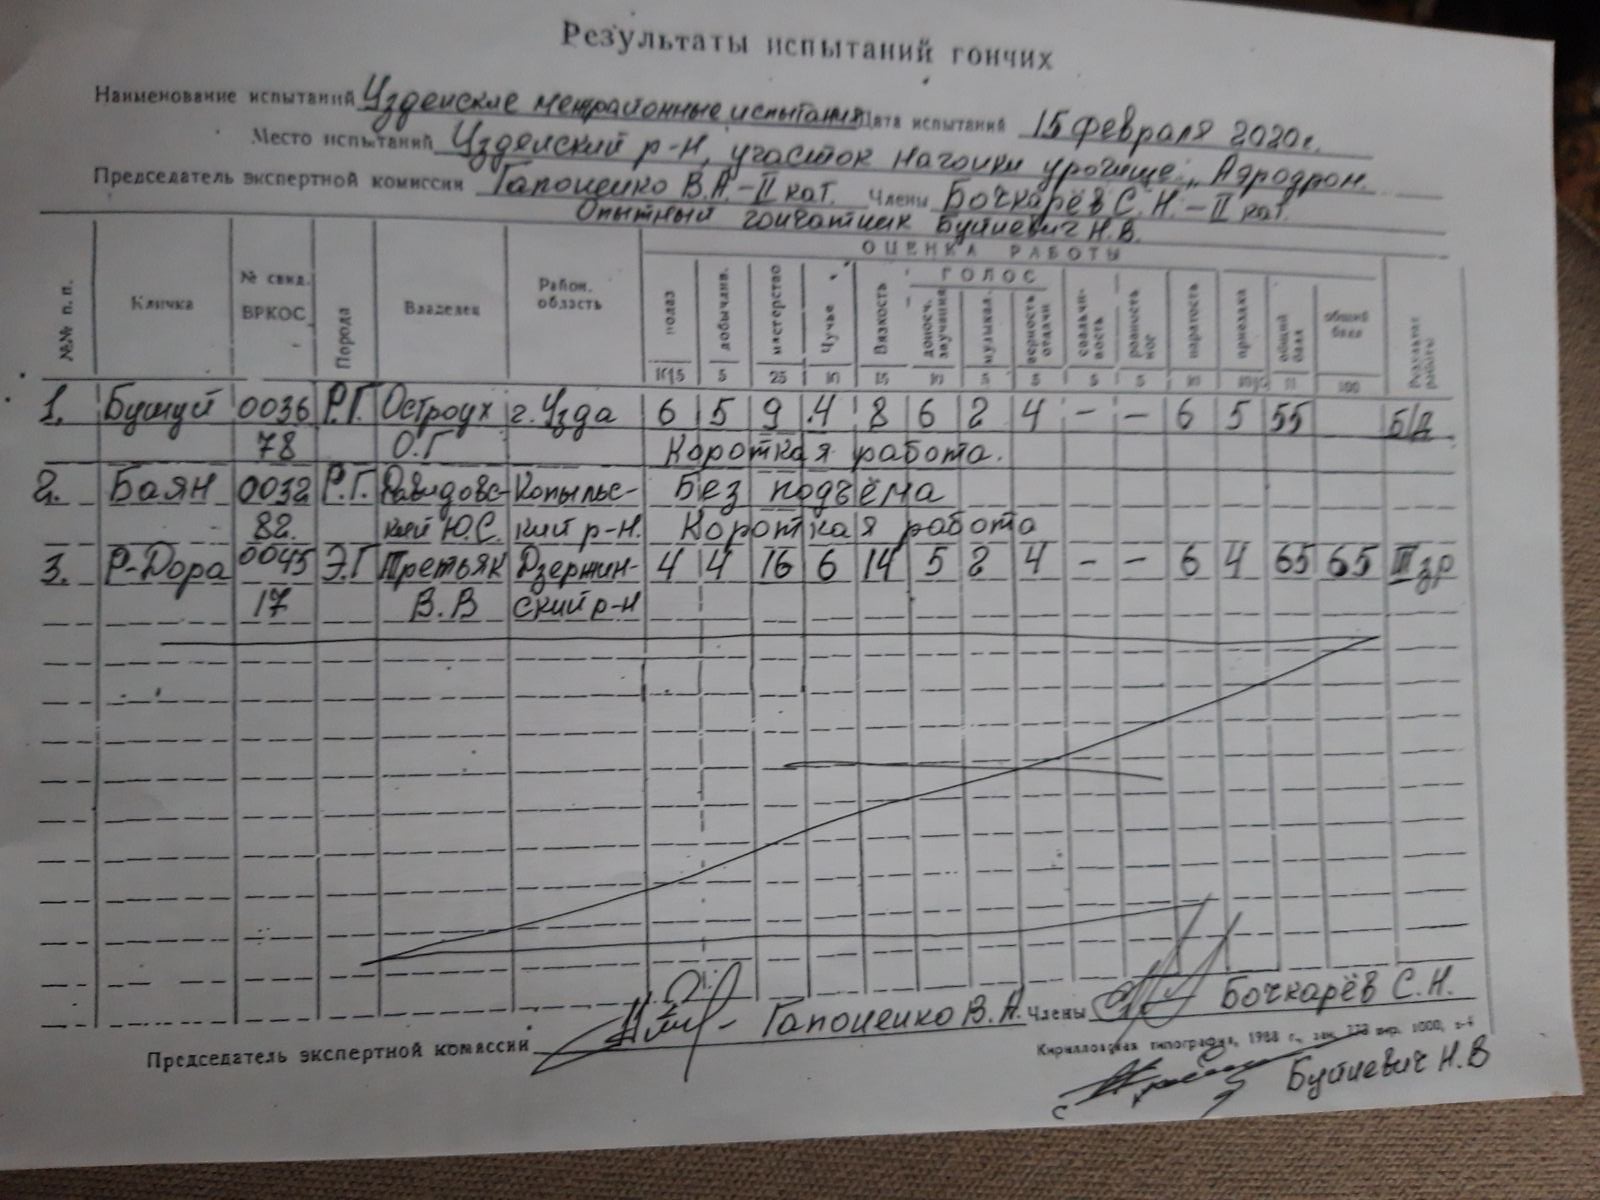 Результаты испытаний гончих
Наименование испытаний Узденские межрайонные испытания Дата испытаний 15 февраля 2020г.
Место испытаний Узденский р-н, участок нагонки урочище „Аэродром.
Председатель экспертной комиссии Гапоненко В.А.-II кат. Члены Бочкарёв С.Н.-II кат.
Опытный гончатник Буйневич Н.В.
№№ п.п. Кличка № свид. ВРКОС Порода Владелец Район. область ОЦЕНКА РАБОТЫ
полаз добычлив. мастерство Чутье Вязкость ГОЛОС доносч. звучания музыкал. верность отдачи свальчивость ровность ног паратость приездка общий балл общий балл Результат работы
5 25 10 15 10 5 5 5 5 10 100
1. Бушуй 0036 Р.Г. Остроух г. Узда 6 5 9 4 8 6 2 4 - - 6 5 55 б/д
78 О.Г Короткая работа.
2. Баян 0032 Р.Г. Давидовс- Копыльс- Без подъёма
82. кий Ю.С. кий р-н. Короткая работа
3. Р-Дора 0045 Э.Г Третьяк Дзержин- 4 4 16 6 14 5 2 4 - - 6 4 65 65 III зр
17 В.В ский р-н
Председатель экспертной комиссии Гапоненко В.А. Члены Бочкарёв С.Н.
Кирилловская типография, 1988 г., зак. тир. 1000,
Буйневич Н.В